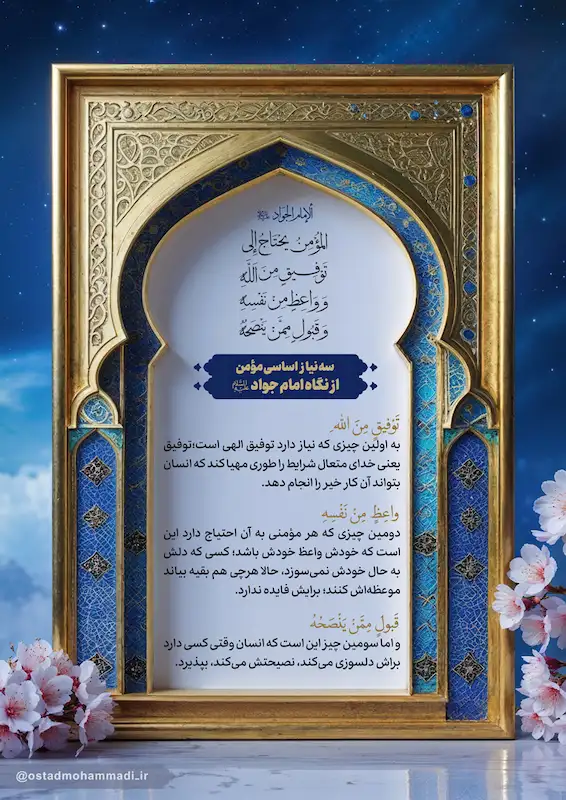 الإمام الجواد علیه‌السلام
المُؤمِنُ يَحتَاجُ إلى
تَوفيقٍ مِنَ اللّهِ
وَ وَاعِظٍ مِن نَفسِهِ
وَ قَبولٍ مِمَّن يَنصَحُهُ
سه نیاز اساسی مؤمن
از نگاه امام جواد علیه‌السلام
تَوْفیقٍ مِنَ الله
به اولین چیزی که نیاز دارد توفیق الهی است؛توفیق
یعنی خدای متعال شرایط را طوری مهیا کند که انسان
بتواند آن کار خیر را انجام دهد.
واعِظٍ مِنْ نَفْسِهِ
دومین چیزی که هر مؤمنی به آن احتیاج دارد این
است که خودش واعظ خودش باشد؛ کسی که دلش
به حال خودش نمی‌سوزد، حالا هرچی هم بقیه بیاند
موعظه‌اش کنند؛ برایش فایده ندارد.
قَبولٍ مِمَّنْ یَنْصَحُهُ
و اما سومین چیز این است که انسان وقتی کسی دارد
براش دلسوزی می‌کند، نصیحتش می‌کند، بپذیرد.
@ostadmohammadi_ir